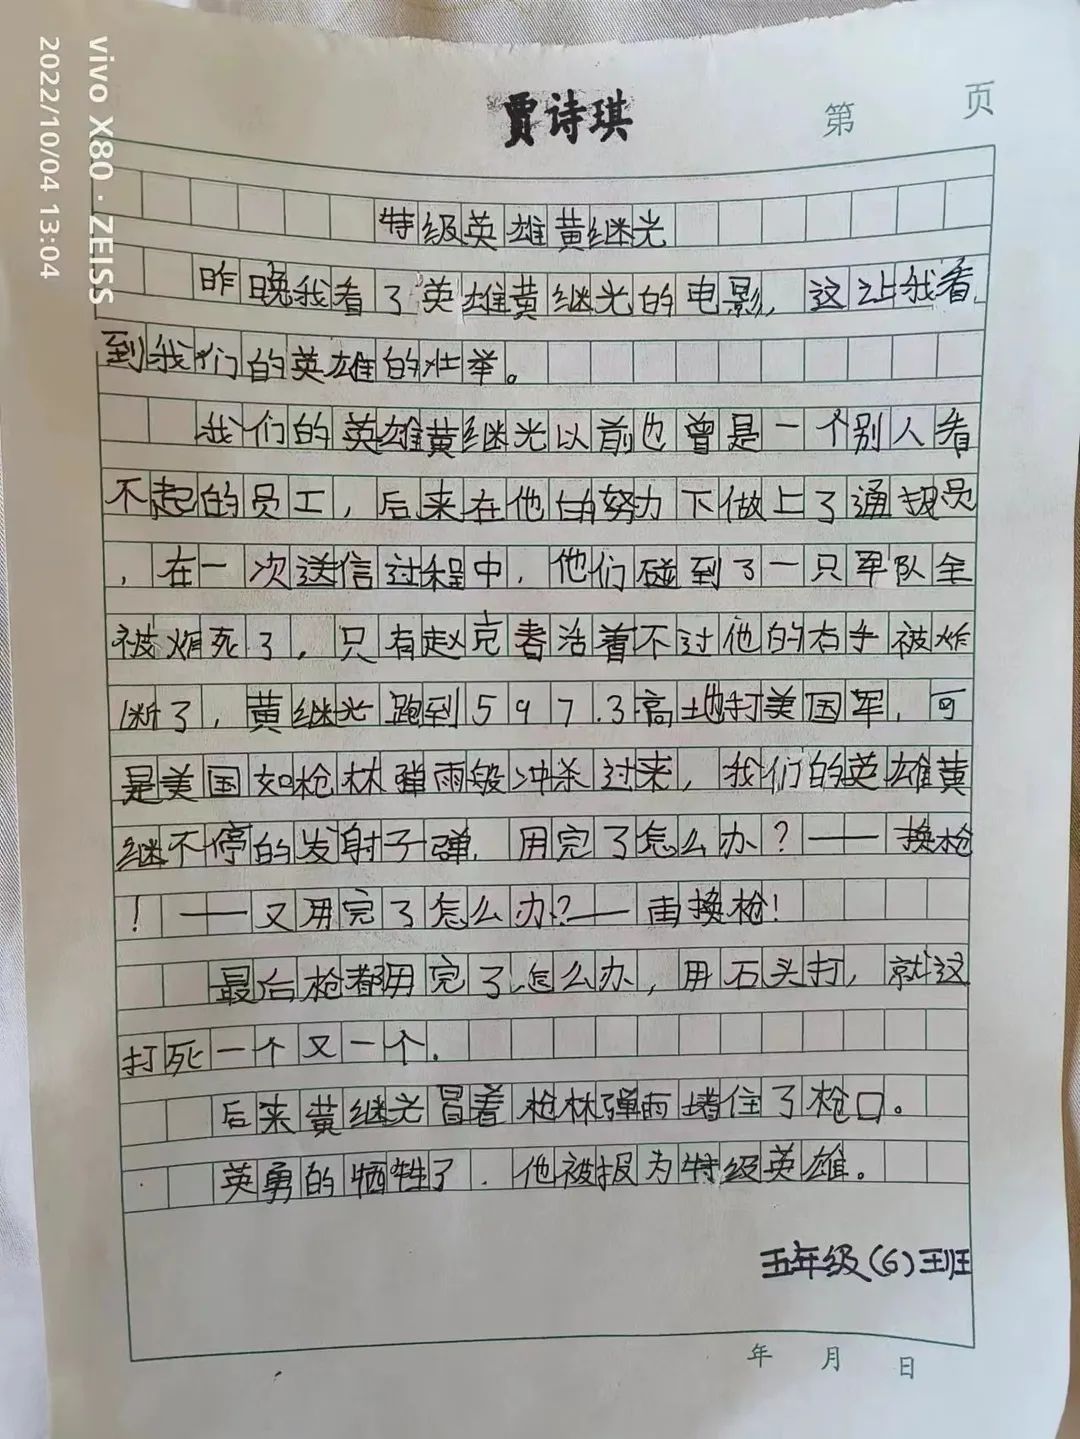 vivo X80 · ZEISS
2022/10/04 13:04
贾诗琪
第 页
特级英雄黄继光
昨晚我看了英雄黄继光的电影，这让我看
到我们的英雄的壮举。
我们的英雄黄继光以前也曾是一个别人看
不起的员工，后来在他的努力下做上了通报员
，在一次送信过程中，他们碰到了一只军队全
被炸死了，只有赵克春活着不过他的右手被炸
断了，黄继光跑到597.3高地打美国军，可
是美国如枪林弹雨般冲杀过来，我们的英雄黄
继不停的发射子弹，用完了怎么办？——换枪
！——又用完了怎么办？——再换枪！
最后枪都用完了怎么办，用石头打，就这
打死一个又一个.
后来黄继光冒着枪林弹雨堵住了枪口。
英勇的牺牲了.他被报为特级英雄。
五年级(6)班
年 月 日